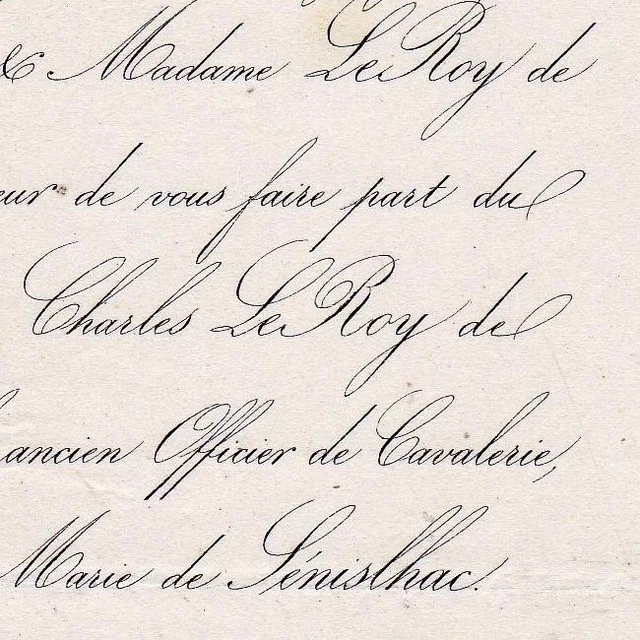 & Madame Le Roy de
eur de vous faire part du
Charles Le Roy de
ancien Officier de Cavalerie,
Marie de Sénislhac.